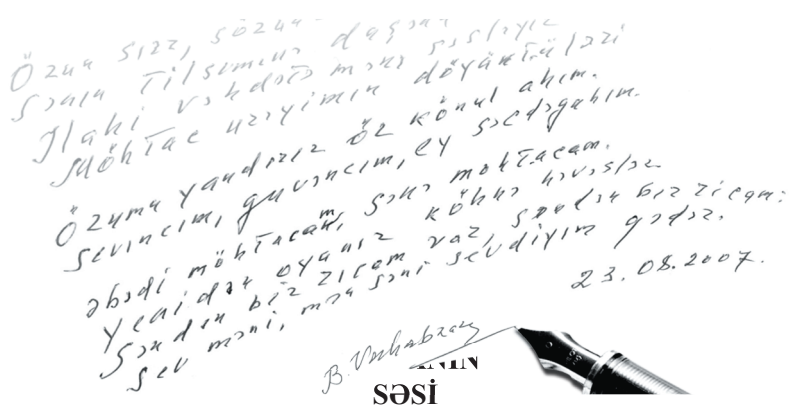 Özün sirr, sözün
Sənin tilsimin daş
İlahi vəhdətə məni səsləyir
Möhtac ürəyimin döyüntüləri
Özümü yandırır öz könül ahım.
Sevincim, güvəncim, ey səcdəgahım.
Əbədi möhtacam, sənə möhtacam.
Yenidən oyanır köhnə həvəslər
Səndən bir ricam var, səndən bir ricam:
Sev məni, mən səni sevdiyim qədər.
23.08.2007.
B. Vahabzadə
SƏSİ